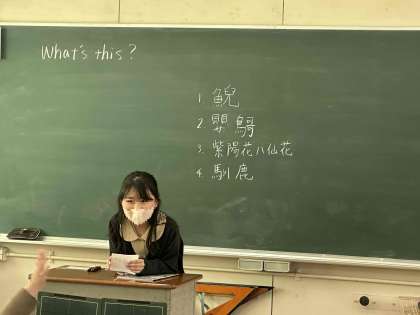 What's this?
1. 鯢
2.
3. 紫陽花八仙花
4. 馴鹿